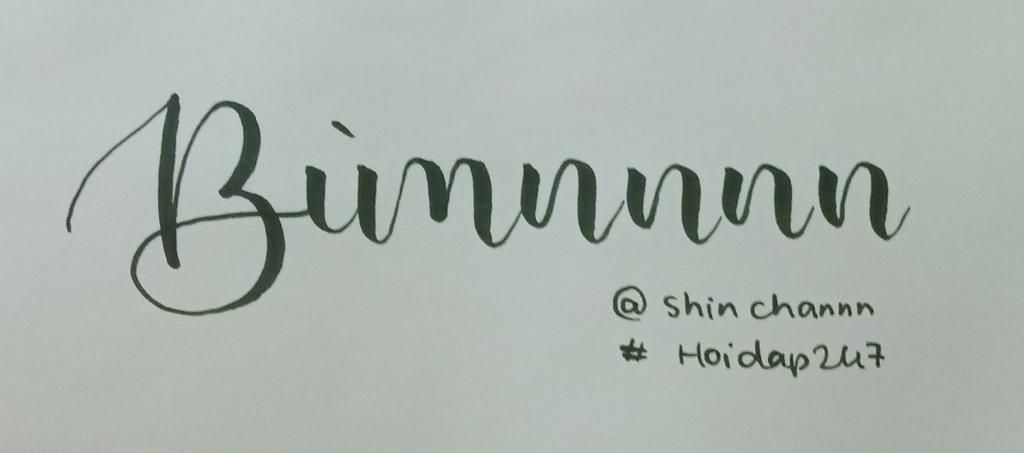 Bùnnnnn
@ shin channn
# Hoidap247